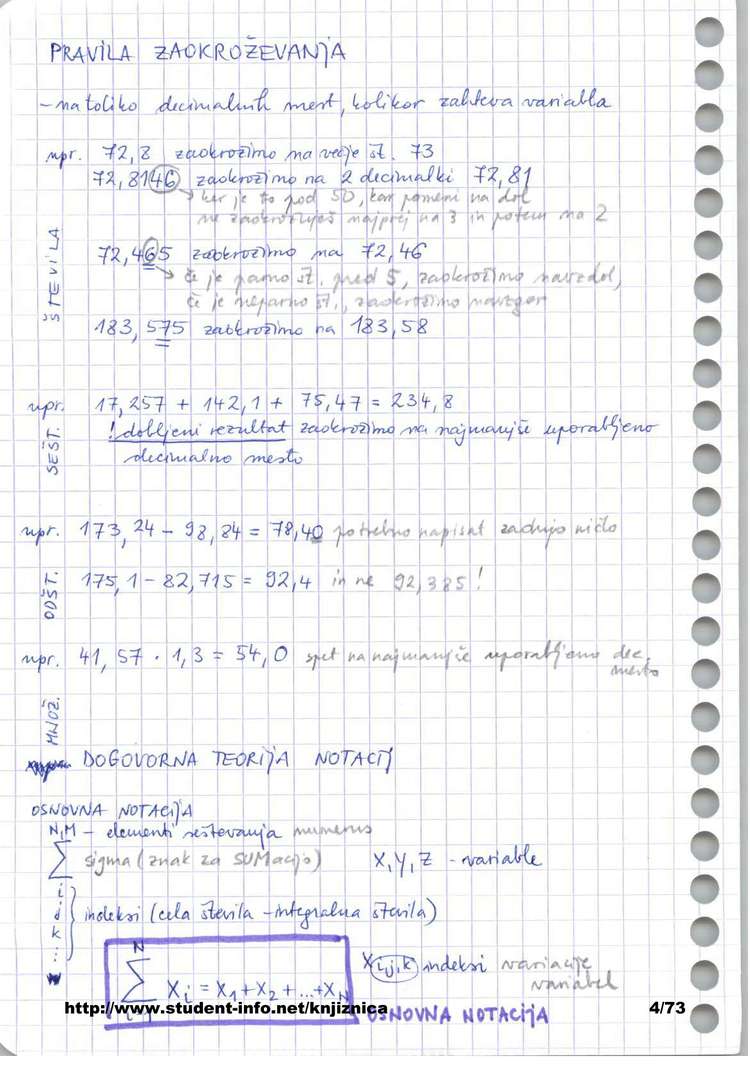 PRAVILA ZAOKROŽEVANJA
- na toliko decimalnih mest, kolikor zahteva variabla
npr. 72,8 zaokrožimo na večje št. 73
72,8146 zaokrožimo na 2 decimalki 72,81
ker je to pod 50, kar pomeni na dol
ne zaokrožuješ najprej na 3 in potem na 2
ŠTEVILA
72,465 zaokrožimo na 72,46
če je parno št. pred 5, zaokrožimo navzdol,
če je neparno št., zaokrožimo navzgor
183,575 zaokrožimo na 183,58
npr. 17,257 + 142,1 + 75,47 = 234,8
SEŠT.
! dobljeni rezultat zaokrožimo na najmanjše uporabljeno
decimalno mesto
npr. 173,24 - 98,84 = 78,40 potrebno napisat zadnjo ničlo
ODŠT.
175,1 - 82,715 = 92,4 in ne 92,385!
npr. 41,57 · 1,3 = 54,0 spet na najmanjše uporabljeno dec.
mesto
MNOŽ.
DOGOVORNA TEORIJA NOTACIJ
OSNOVNA NOTACIJA
N,M - elementi seštevanja numerus
∑ sigma (znak za SUMacijo) X,Y,Z - variable
i
j
k
...
indeksi (cela števila - integralna števila)
N
∑ Xi = X1 + X2 + ... + XN
Xi,j,k indeksi variacije
variabel
OSNOVNA NOTACIJA
http://www.student-info.net/knjiznica
4/73